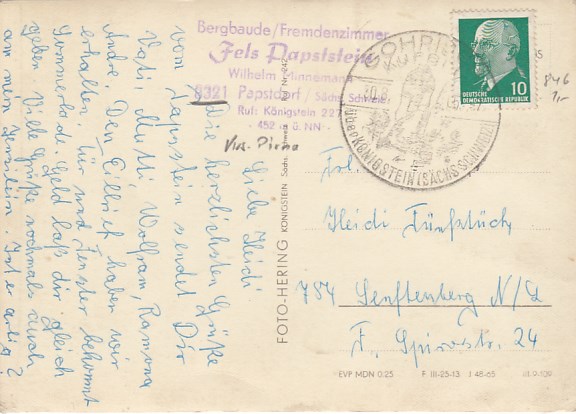 Bergbaude/Fremdenzimmer
Fels Papststein
Wilhelm
8321 Papstdorf / Sächs. Schweiz
Ruf: Königstein 227
452 m ü. NN
Liebe Heidi!
Die herzlichsten Grüße
vom Papststein sendet Dir
Vati, Mutti, Wolfram, Ramona
André. Den Eilbrief haben wir
erhalten. Tür und Fenster bekommt
Sommerlade. Geld laß dir gleich
geben. Viele Grüße nochmals auch
an mein Ist er artig?
FOTO-HERING KÖNIGSTEIN
KURORT
über KÖNIGSTEIN (SÄCHS SCHWEIZ)
10
DEUTSCHE
DEMOKRATISCHE REPUBLIK
846
Frl.
Heidi Fünfstück
784 Senftenberg N/L
F. Spirostr. 24
EVP MDN 0.25
F. III-25-13 J 48-65